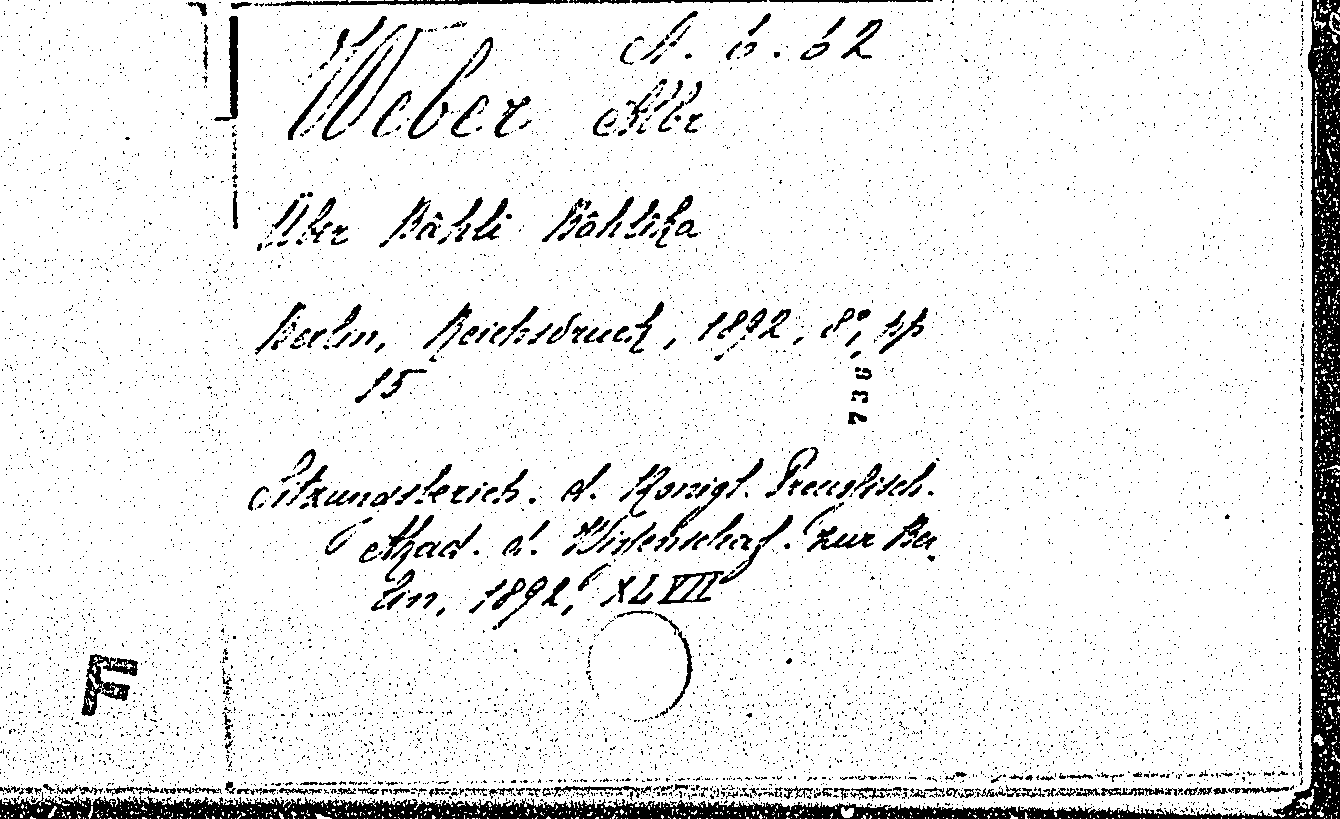 A. 6. 62
Weber Albr
Über Bâhli Bâhlika
Berlin, Reichsdruck, 1892, 8°, pp
15
736
Sitzundsberich. d. Königl. Preußisch.
Akad. d. Wißenschaf. zur Ber
lin, 1892, XLVII
F